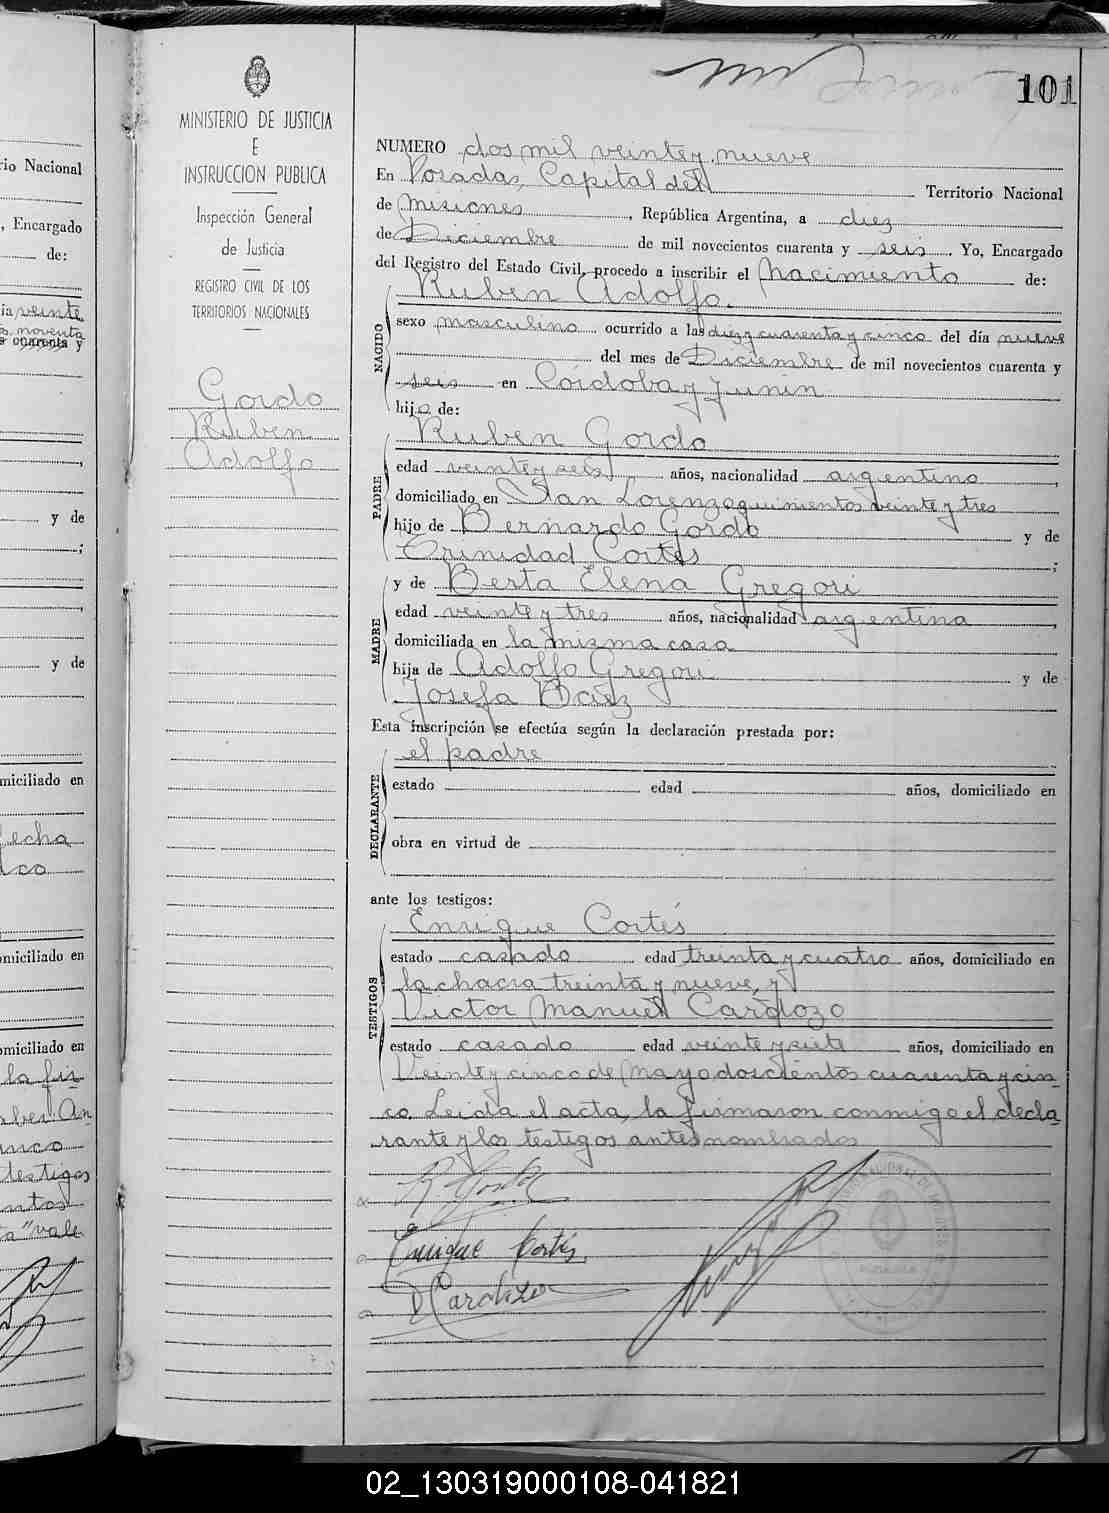 101
MINISTERIO DE JUSTICIA
E
INSTRUCCION PUBLICA
Inspección General
de Justicia
REGISTRO CIVIL DE LOS
TERRITORIOS NACIONALES
Gordo
Ruben
Adolfo
NUMERO dos mil veinte y nueve
En Posadas, Capital del Territorio Nacional
de Misiones, República Argentina, a diez
de Diciembre de mil novecientos cuarenta y seis. Yo, Encargado
del Registro del Estado Civil, procedo a inscribir el Nacimiento de:
Ruben Adolfo.
NACIDO
sexo masculino ocurrido a las diez y cuarenta y cinco del día nueve
del mes de Diciembre de mil novecientos cuarenta y
seis en Córdoba y Junin
hijo de:
Ruben Gordo
PADRE
edad veinte y seis años, nacionalidad argentino,
domiciliado en San Lorenzo quinientos veinte y tres
hijo de Bernardo Gordo y de
Trinidad Cortés;
y de Berta Elena Gregori
MADRE
edad veinte y tres años, nacionalidad argentina,
domiciliada en la misma casa
hija de Adolfo Gregori y de
Josefa Baez
Esta inscripción se efectúa según la declaración prestada por:
el padre
DECLARANTE
estado edad años, domiciliado en
obra en virtud de
ante los testigos:
Enrique Cortés
TESTIGOS
estado casado edad treinta y cuatro años, domiciliado en
la chacra treinta y nueve, y
Victor Manuel Cardozo
estado casado edad veinte y siete años, domiciliado en
Veinte y cinco de Mayo doscientos cuarenta y cin-
co. Leida el acta, la firmaron conmigo el decla-
rante y los testigos antes nombrados
Enrique Cortés
Cardozo
rio Nacional
, Encargado
de:
ia veinte
noventa
cuarenta y
y de
;
y de
miciliado en
fecha
co
omiciliado en
omiciliado en
la fir
An
testigos
"vale
02_130319000108-041821